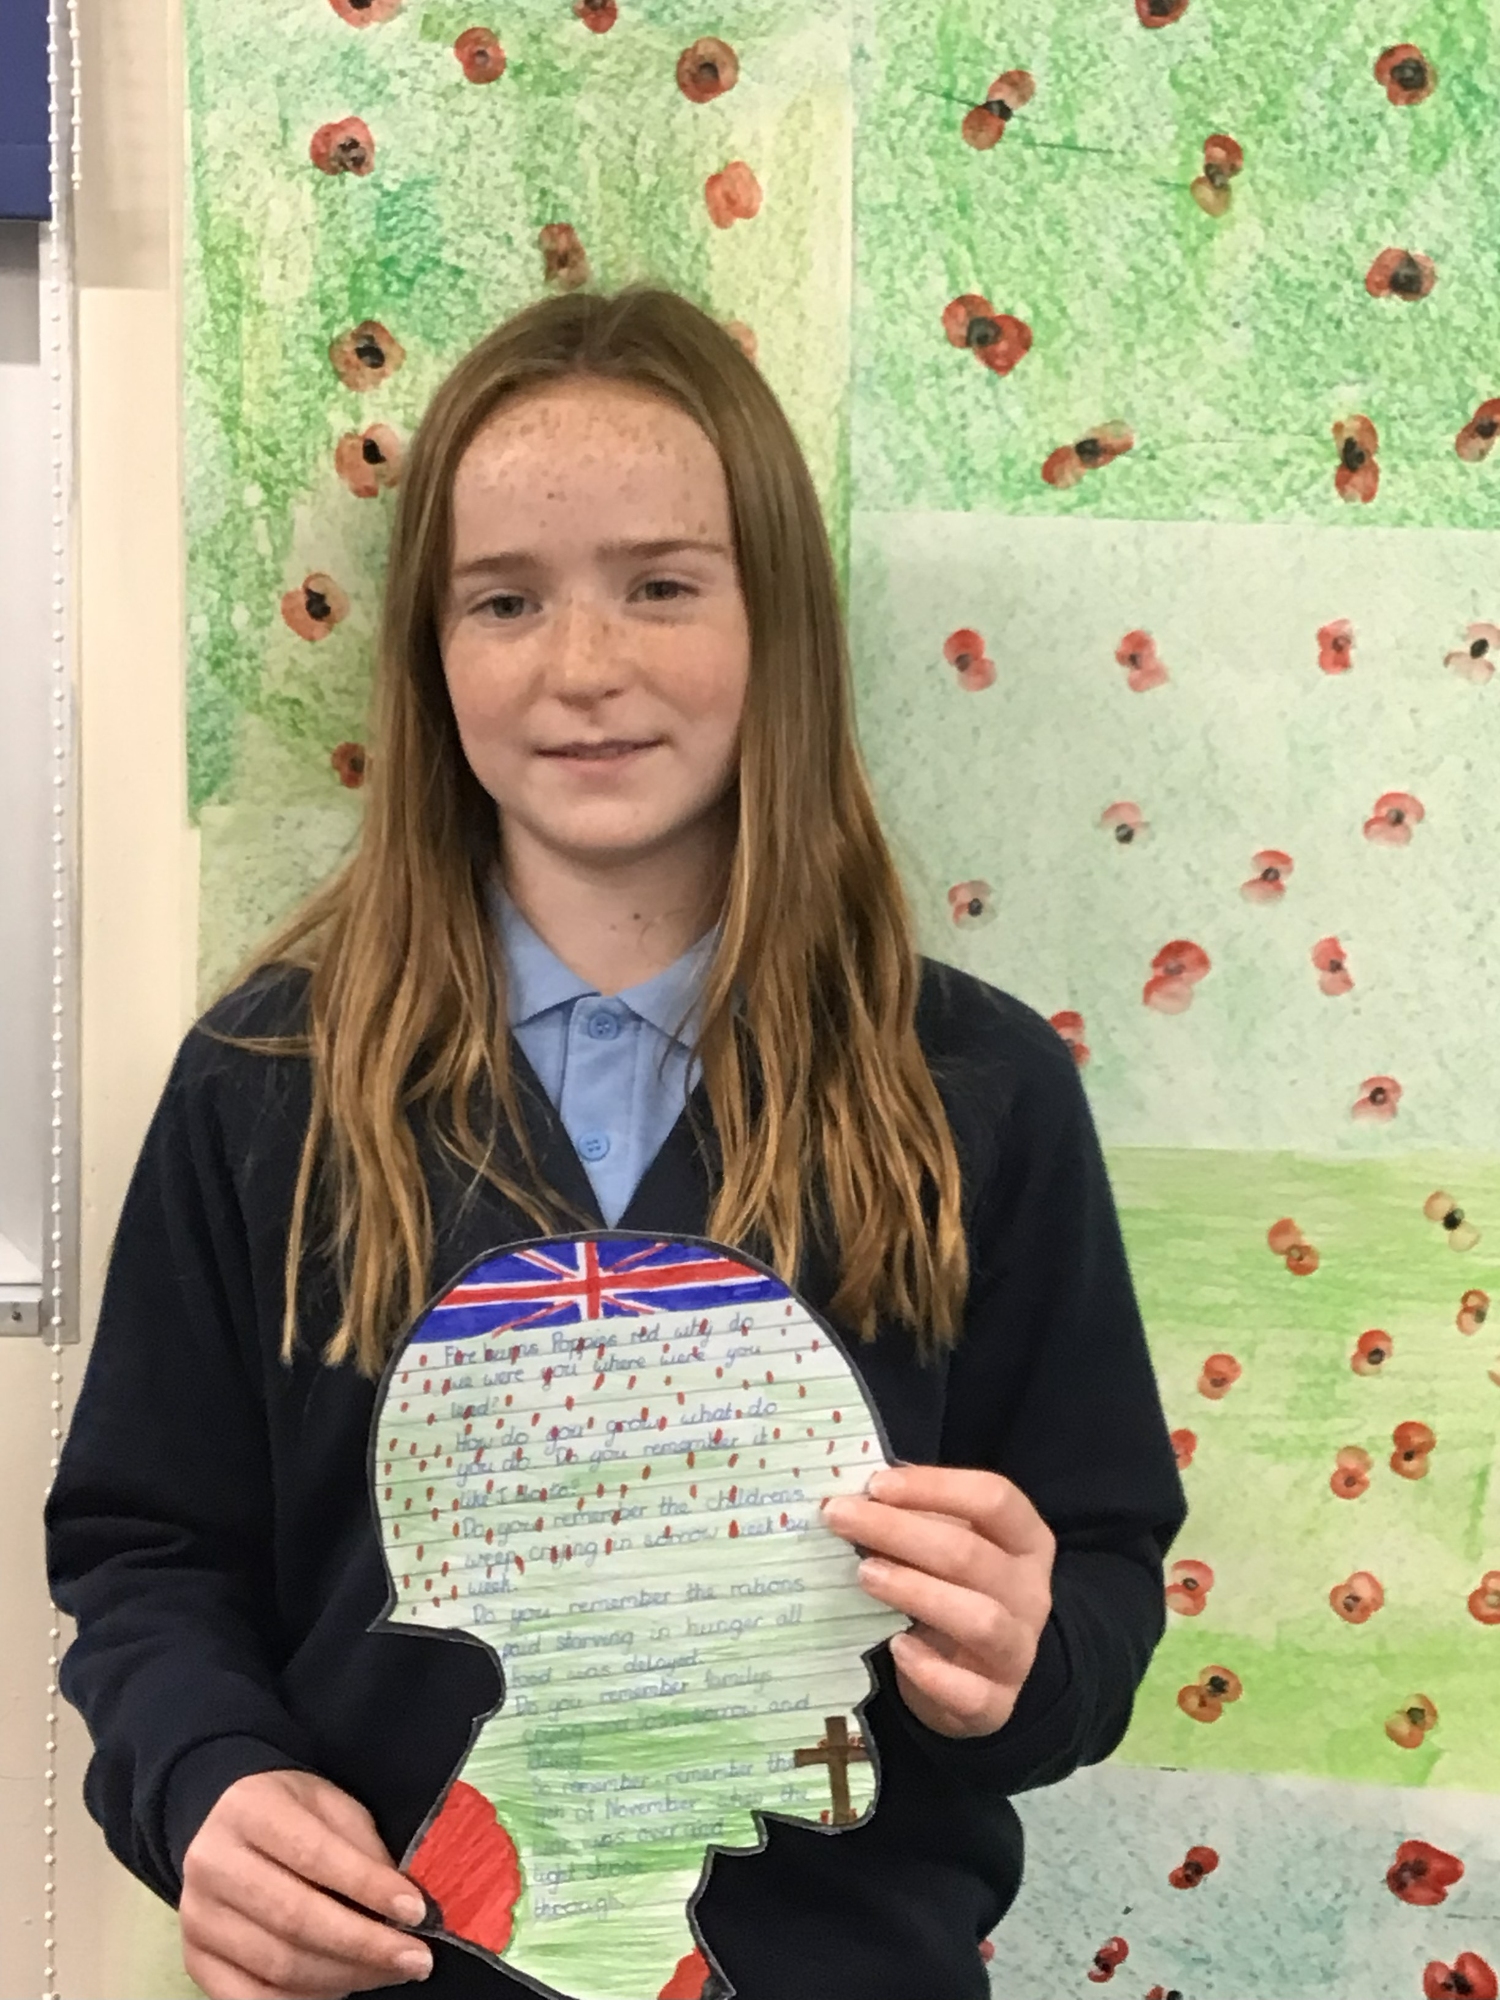 Fire burns Poppies red why do
we were you where were you
lead?
How do you grow what do
you do. Do you remember it
like I do to?
Do you remember the childrens
weep crying in sorrow week by
week.
Do you remember the rations
paid starving in hunger all
food was delayed.
Do you remember familys
sorrow and
dieing
So remember remember the
of November when the
was over and
light shone
through